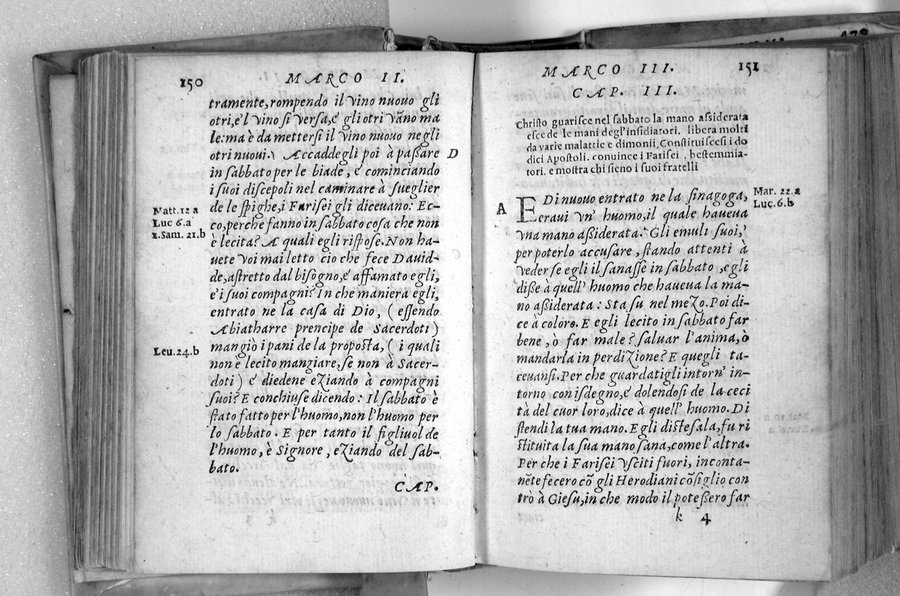 150
MARCO II.
tramente, rompendo il vino nuouo gli
otri, e'l vino si versa, e' gli otri vāno ma
le: ma è da mettersi il vino nuouo ne gli
otri nuoui. Accaddegli poi à passare
D
in sabbato per le biade, e' cominciando
i suoi discepoli nel caminare à sueglier
de le spighe, i Farisei gli diceuano: Ec-
Matt. 12 a
co, perche fanno in sabbato cosa che non
Luc 6. a
è lecita? A quali egli rispose. Non ha-
2. Sam. 21. b
uete voi mai letto cio che fece Dauid-
de, astretto dal bisogno, e' affamato egli,
e' i suoi compagni? In che maniera egli,
entrato ne la casa di Dio, (essendo
Abiatharre prencipe de Sacerdoti)
mangiò i pani de la proposta, (i quali
Leu. 24. b
non è lecito mangiare, se non à Sacer-
doti) e' diedene eziando à compagni
suoi? E conchiuse dicendo: Il sabbato è
stato fatto per l'huomo, non l'huomo per
lo sabbato. E per tanto il figliuol de
l'huomo, è Signore, eziando del sab-
bato.
CAP.
MARCO III.
151
CAP. III.
Christo guarisce nel sabbato la mano assiderata
esce de le mani degl'insidiatori. libera molti
da varie malattie e dimonii, Constituiscesi i do
dici Apostoli. conuince i Farisei, bestemmia-
tori. e mostra chi sieno i suoi fratelli
A
E Di nuouo entrato ne la sinagoga,
Mar. 22. a
eraui vn' huomo, il quale haueua
Luc. 6. b
vna mano assiderata. Gli emuli suoi,
per poterlo accusare, stando attenti à
veder se egli il sanasse in sabbato, egli
disse à quell' huomo che haueua la ma-
no assiderata: Sta su nel mezo. Poi di-
ce à coloro. E egli lecito in sabbato far
bene, ò far male? saluar l'anima, ò
mandarla in perdizione? E quegli ta-
ceuansi. Per che guardatigli intorn' in-
torno con isdegno, e' dolendosi de la ceci
tà del cuor loro, dice à quell' huomo. Di
stendi la tua mano. Egli distesala, fu ri
stituita la sua mano sana, come l'altra.
Per che i Farisei vsciti fuori, inconta-
nēte fecero cō gli Herodiani cōsiglio con
tro à Giesu, in che modo il potessero far
k 4